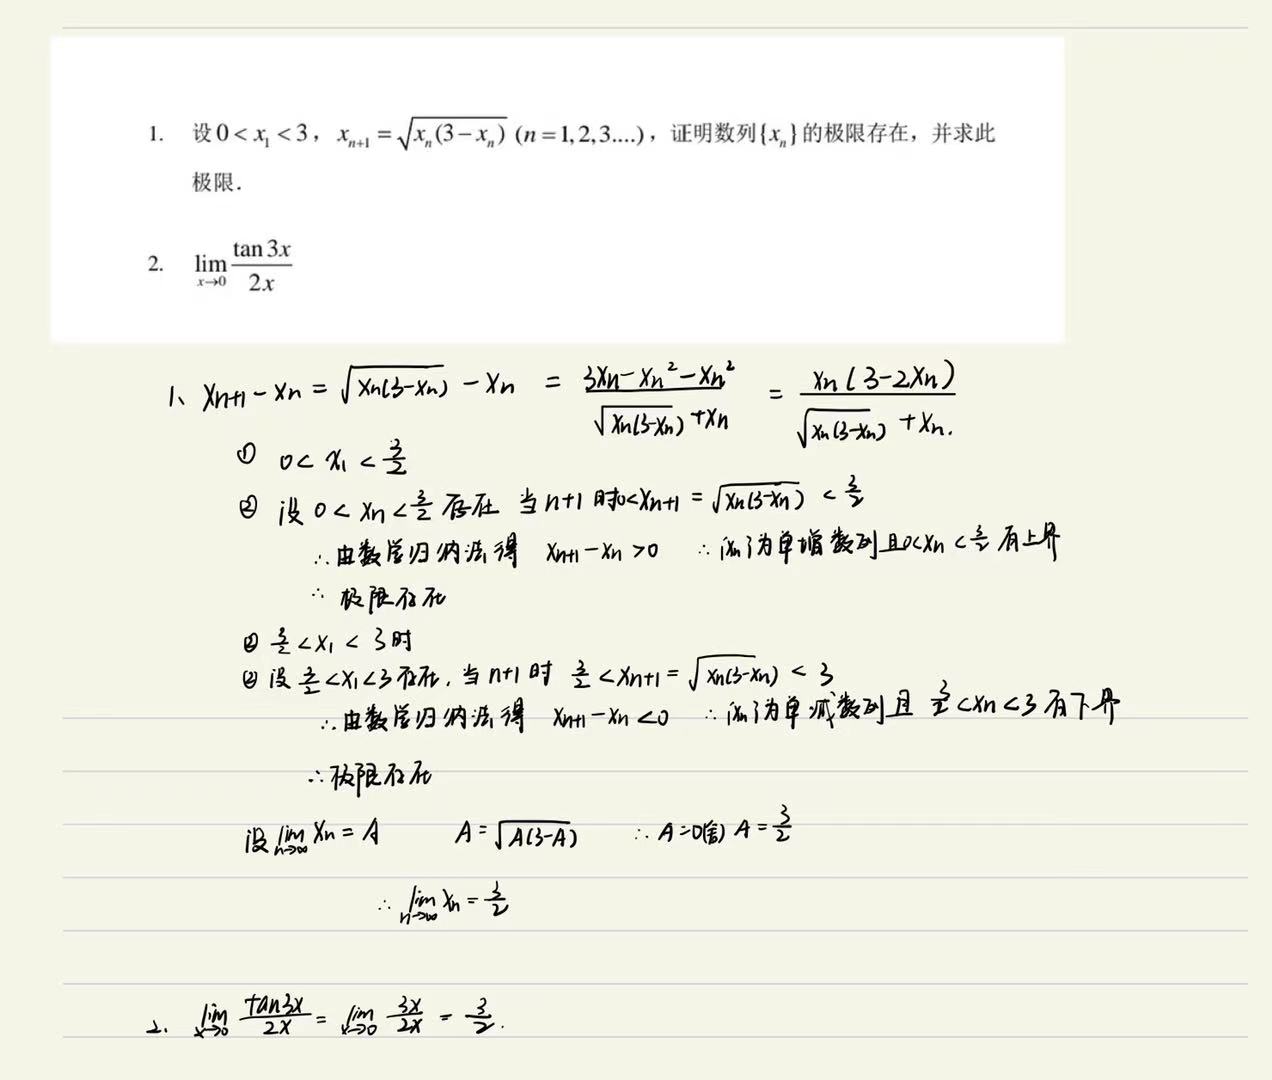 1. 设 0 < x₁ < 3，xₙ₊₁ = √(xₙ(3−xₙ)) (n = 1,2,3....)，证明数列{xₙ}的极限存在，并求此
极限.
2. lim_{x→0} tan 3x / 2x
1、Xn+1 - Xn = √(Xn(3-Xn)) - Xn = (3Xn - Xn² - Xn²) / (√(Xn(3-Xn)) + Xn) = Xn(3-2Xn) / (√(Xn(3-Xn)) + Xn).
① 0 < x₁ < 3/2
② 设 0 < Xn < 3/2 存在 当 n+1 时 0 < Xn+1 = √(Xn(3-Xn)) < 3/2
∴ 由数学归纳法得 Xn+1 - Xn > 0 ∴ {Xn}为单增数列且 0 < Xn < 3/2 有上界
∴ 极限存在
② 3/2 < X₁ < 3 时
② 设 3/2 < X₁ < 3 存在, 当 n+1 时 3/2 < Xn+1 = √(Xn(3-Xn)) < 3
∴ 由数学归纳法得 Xn+1 - Xn < 0 ∴ {Xn}为单减数列且 3/2 < Xn < 3 有下界
∴ 极限存在
设 lim_{n→∞} Xn = A A = √(A(3-A)) ∴ A = 0(舍) A = 3/2
∴ lim_{n→∞} Xn = 3/2
2. lim_{x→0} tan3x / 2x = lim_{x→0} 3x / 2x = 3/2.